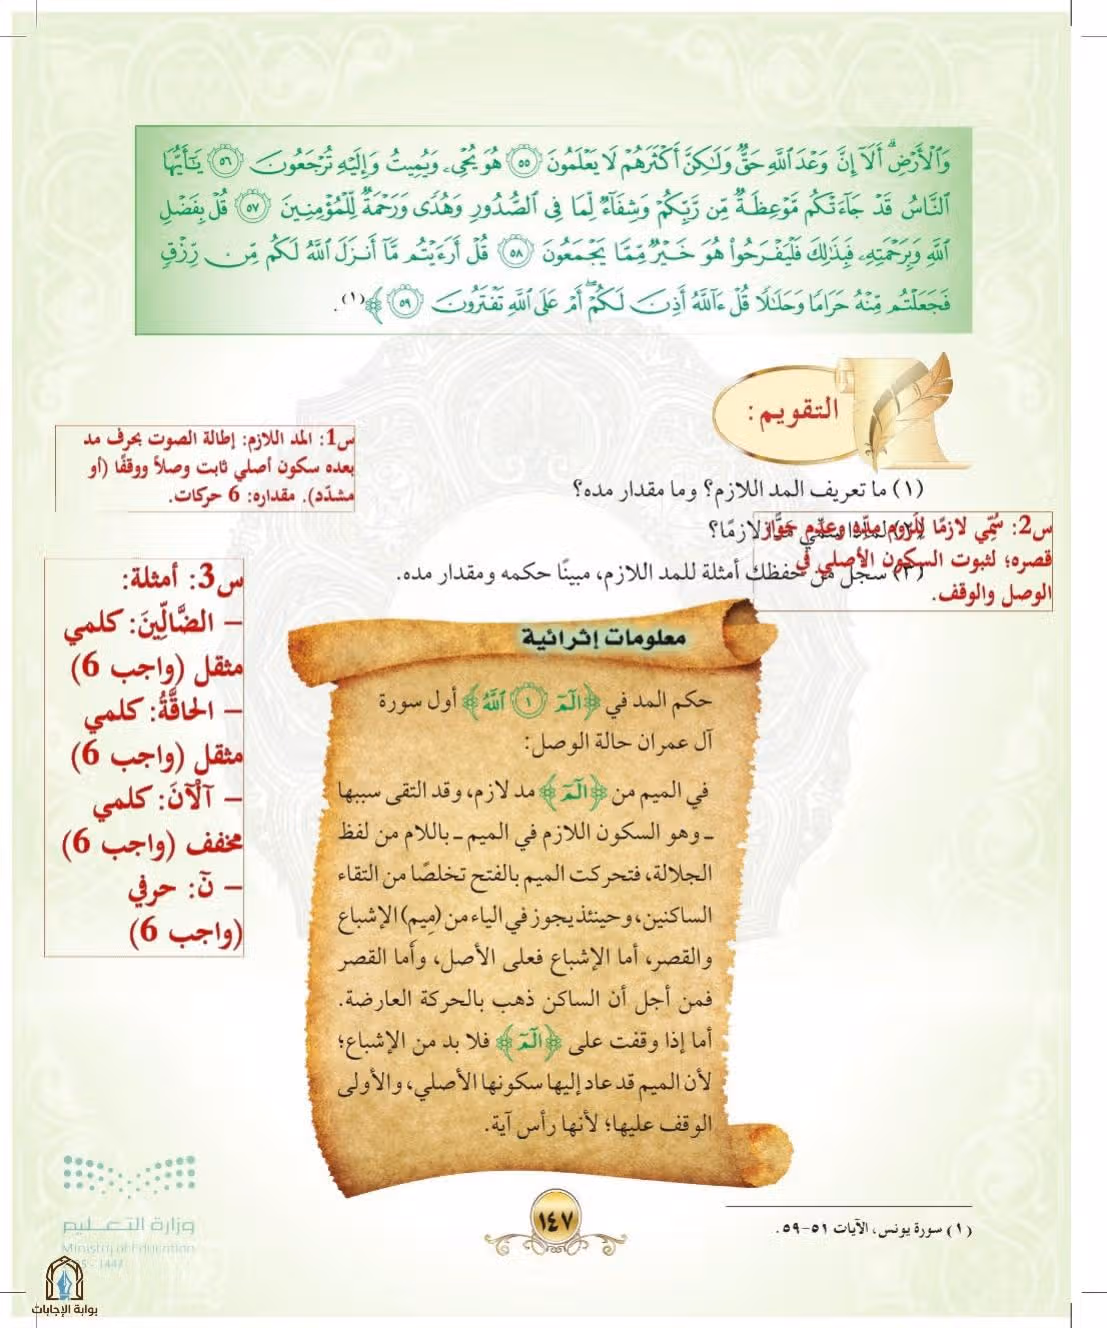 وَالْأَرْضِ ۗ أَلَا إِنَّ وَعْدَ اللَّهِ حَقٌّ وَلَٰكِنَّ أَكْثَرَهُمْ لَا يَعْلَمُونَ ٥٥ هُوَ يُحْيِي وَيُمِيتُ وَإِلَيْهِ تُرْجَعُونَ ٥٦ يَا أَيُّهَا
النَّاسُ قَدْ جَاءَتْكُم مَّوْعِظَةٌ مِّن رَّبِّكُمْ وَشِفَاءٌ لِّمَا فِي الصُّدُورِ وَهُدًى وَرَحْمَةٌ لِّلْمُؤْمِنِينَ ٥٧ قُلْ بِفَضْلِ
اللَّهِ وَبِرَحْمَتِهِ فَبِذَٰلِكَ فَلْيَفْرَحُوا هُوَ خَيْرٌ مِّمَّا يَجْمَعُونَ ٥٨ قُلْ أَرَأَيْتُم مَّا أَنزَلَ اللَّهُ لَكُم مِّن رِّزْقٍ
فَجَعَلْتُم مِّنْهُ حَرَامًا وَحَلَالًا قُلْ آللَّهُ أَذِنَ لَكُمْ ۖ أَمْ عَلَى اللَّهِ تَفْتَرُونَ ٥٩ ﴾(١).
التقويم:
(١) ما تعريف المد اللازم؟ وما مقدار مده؟
س1: المد اللازم: إطالة الصوت بحرف مد
بعده سكون أصلي ثابت وصلاً ووقفًا (أو
مشدّد). مقداره: 6 حركات.
(٢) لماذا سمي مدًّا لازمًا؟
س2: سُمِّي لازمًا للزوم مدّه وعدم جواز
قصره؛ لثبوت السكون الأصلي في
الوصل والوقف.
(٣) سجل من حفظك أمثلة للمد اللازم، مبينًا حكمه ومقدار مده.
س3: أمثلة:
– الضَّالِّينَ: كلمي
مثقل (واجب 6)
– الحاقَّةُ: كلمي
مثقل (واجب 6)
– آلْآنَ: كلمي
مخفف (واجب 6)
– نٓ: حرفي
(واجب 6)
معلومات إثرائية
حكم المد في ﴿الٓمٓ ١ اللَّهُ﴾ أول سورة
آل عمران حالة الوصل:
في الميم من ﴿الٓمٓ﴾ مد لازم، وقد التقى سببها
ـ وهو السكون اللازم في الميم ـ باللام من لفظ
الجلالة، فتحركت الميم بالفتح تخلصًا من التقاء
الساكنين، وحينئذ يجوز في الياء من (مِيم) الإشباع
والقصر، أما الإشباع فعلى الأصل، وأما القصر
فمن أجل أن الساكن ذهب بالحركة العارضة.
أما إذا وقفت على ﴿الٓمٓ﴾ فلا بد من الإشباع؛
لأن الميم قد عاد إليها سكونها الأصلي، والأولى
الوقف عليها؛ لأنها رأس آية.
(١) سورة يونس، الآيات ٥١-٥٩.
١٤٧
وزارة التعليم
Ministry of Education
بوابة الإجابات